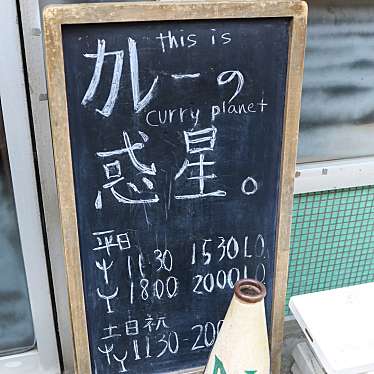 this is
カレーの
curry planet
惑星。
平日
11:30 1530LO
18:00 2000LO
土日祝
11:30-200